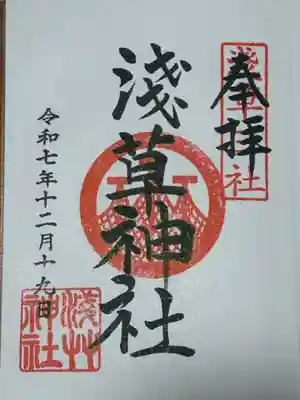 奉拝
淺草神社
淺草神社
令和七年十二月十九日
淺草神社